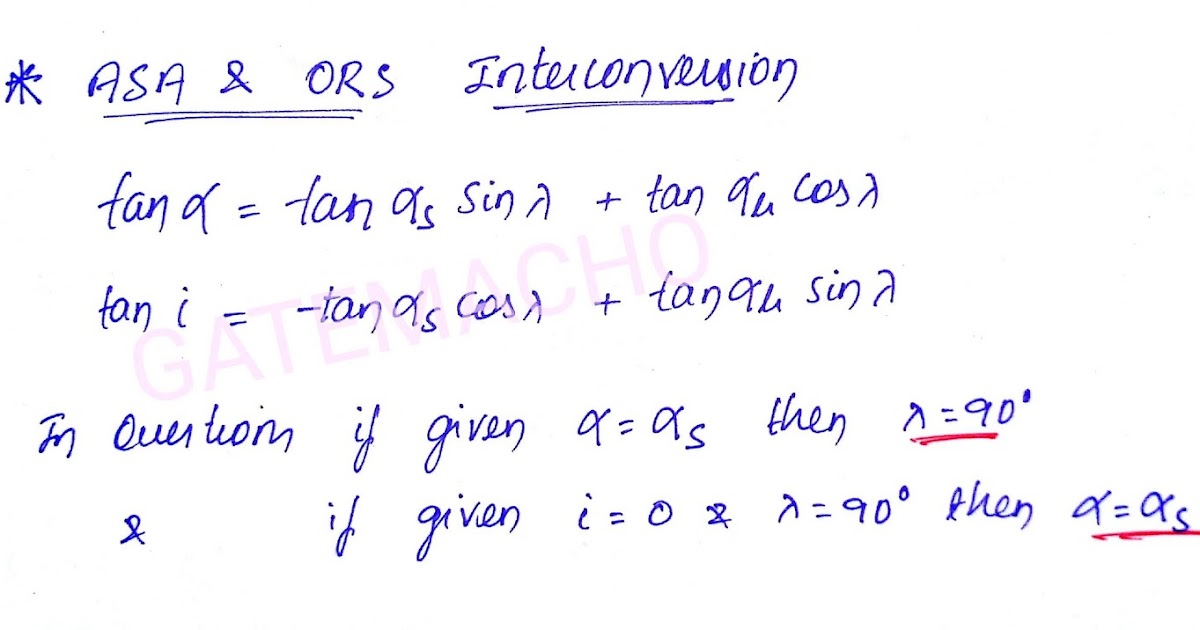 * ASA & ORS Interconversion
tan α = tan αₛ sin λ + tan α_b cos λ
tan i = -tan αₛ cos λ + tan α_b sin λ
GATEMACHO
In Question if given α = αₛ then λ = 90°
& if given i = 0 & λ = 90° then α = αₛ